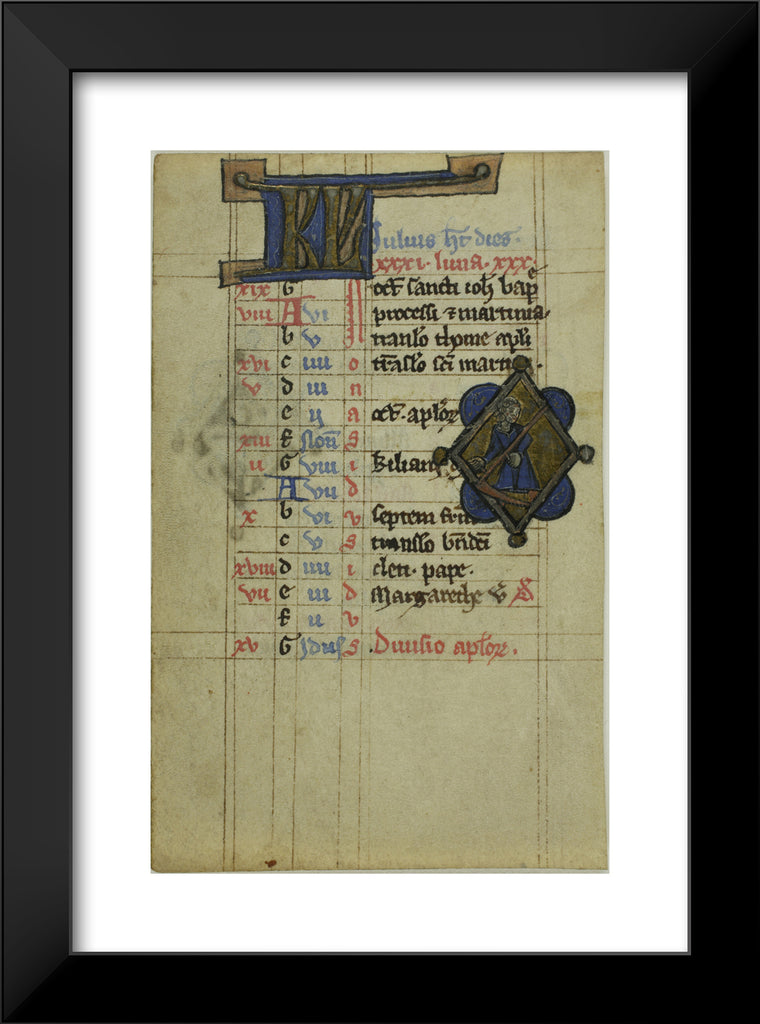 KL Julius ht dies.
xxxi. luna. xxx.
xix G oct sancti ioh bap
viii A vi processi ⁊ martinia
b v translo thome apli
xvi c iiii o traslo sci marti
v d iii n
e ii a oct. aplor
xiii f non s
ii G viii i kilian
A vii d
x b vi v septem frm
c v s translo bndci
xviii d iiii i cleti. pape.
vii e iii d Margarethe v
f ii v
xv G Idus s .Divisio aplor.